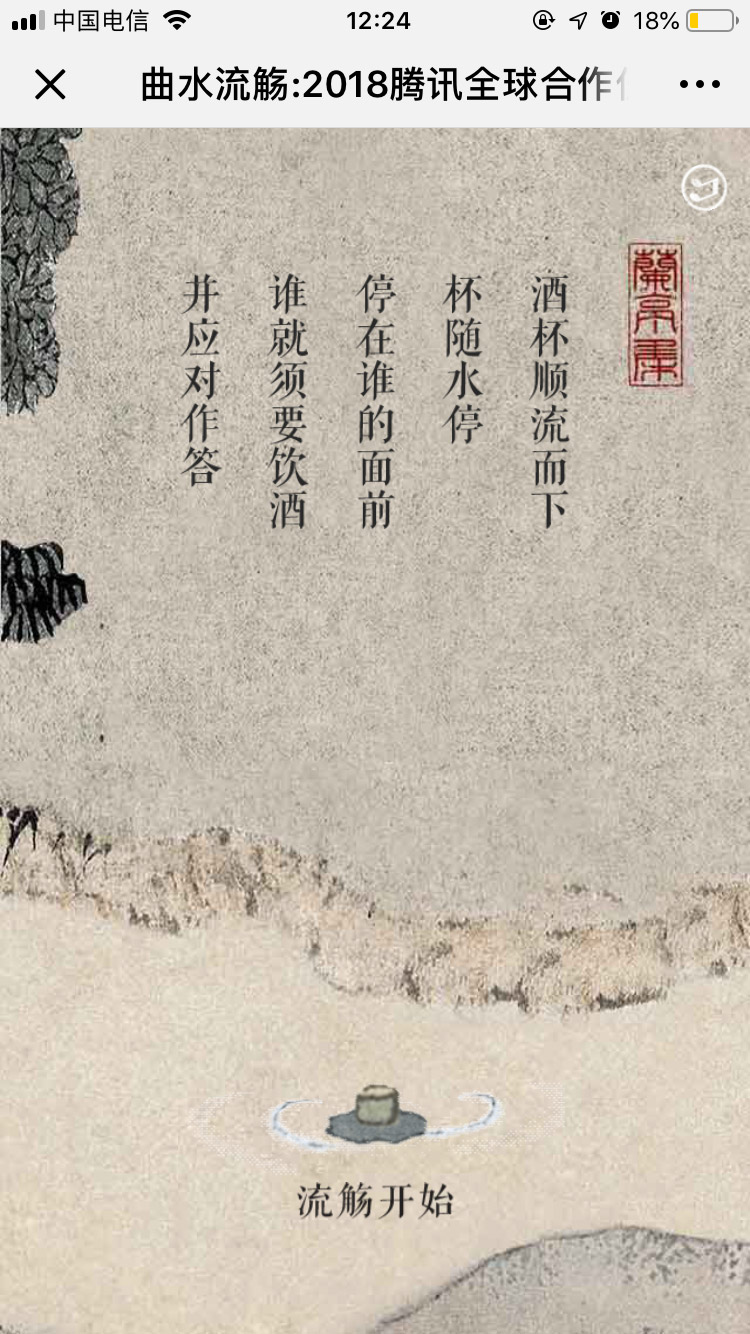 中国电信 12:24 18%
曲水流觞:2018腾讯全球合作
蘭亭集
酒杯顺流而下
杯随水停
停在谁的面前
谁就须要饮酒
并应对作答
流觞开始